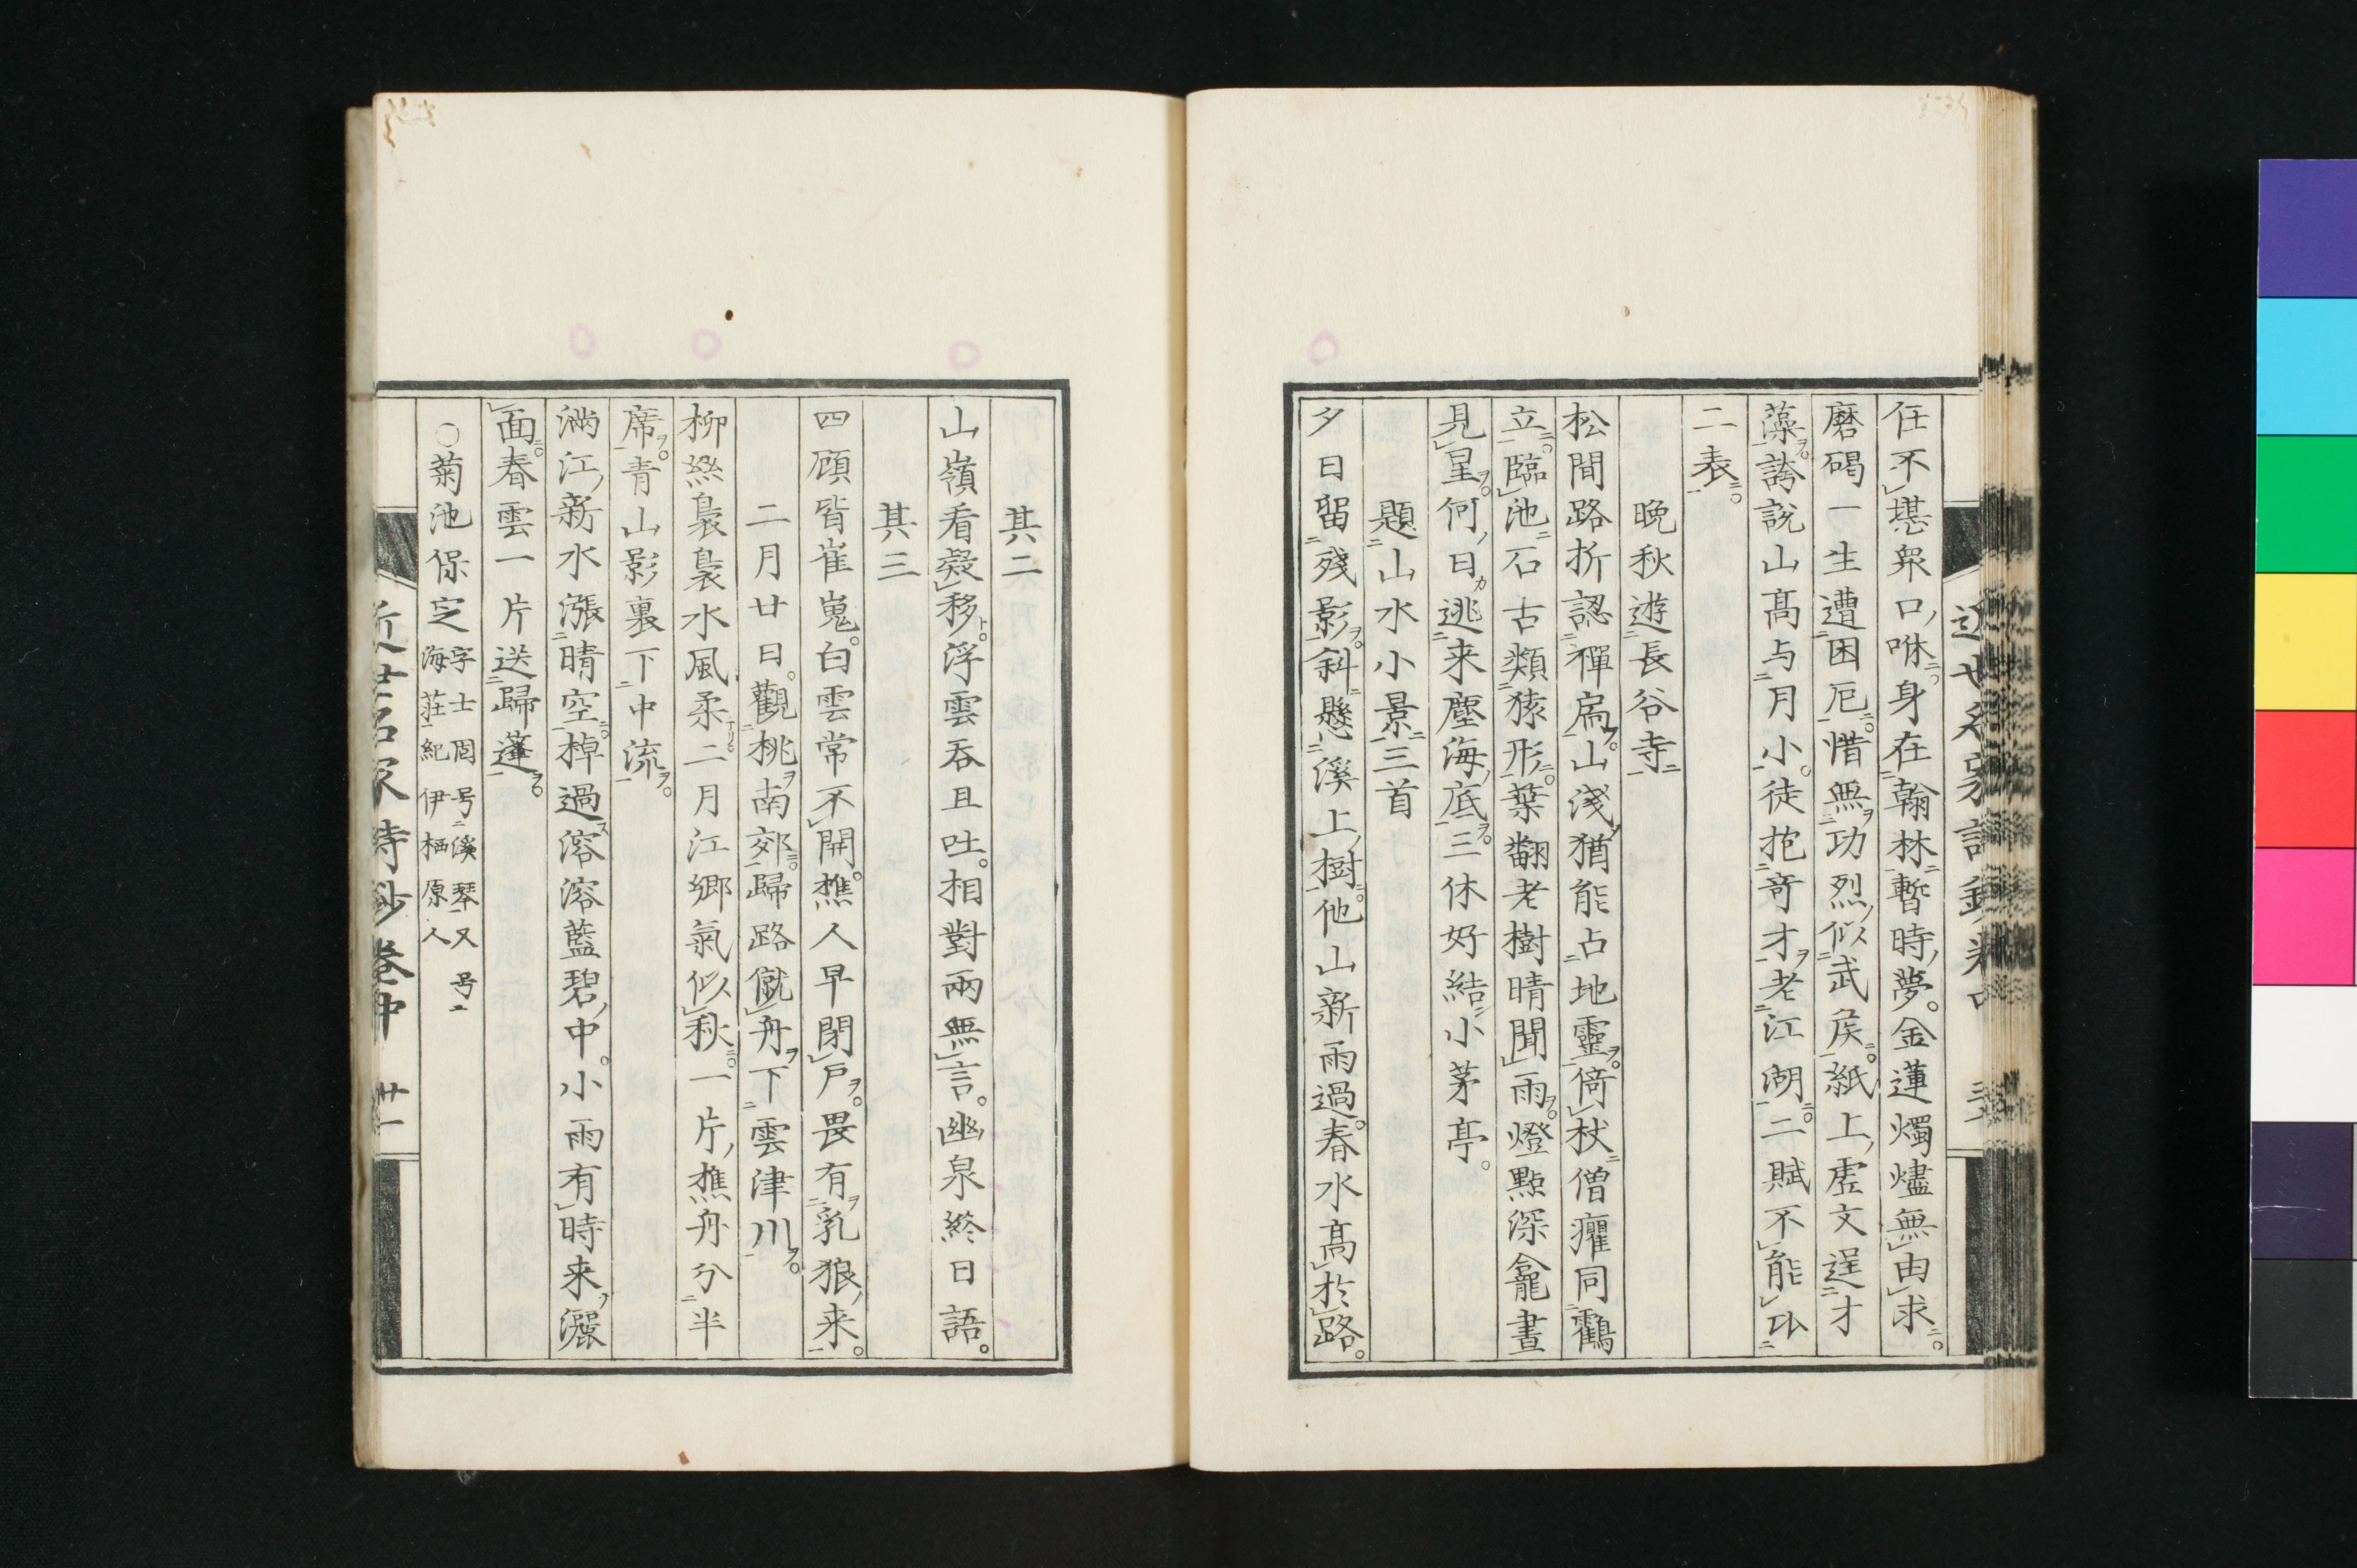 任不堪衆口咻身在翰林暫時夢金蓮燭燼無由求
磨碣一生遭困厄惜無功烈似武侯紙上虚文逞才
藻誇説山高与月小徒抱奇才老江湖二賦不能及
二表
晩秋遊長谷寺
松間路折認禪扃山淺猶能占地靈倚杖僧癯同鶴
立臨池石古類猿形葉翻老樹晴聞雨燈點深龕晝
見星何日逃来塵海底三休好結小茅亭
題山水小景三首
夕日留殘影斜懸溪上樹他山新雨過春水高於路
其二
山嶺看凝移浮雲呑且吐相對兩無言幽泉終日語
其三
四顧皆崔嵬白雲常不開樵人早閉戸畏有乳狼来
二月廿日觀桃南郊歸路僦舟下雲津川
柳絲裊裊水風柔二月江郷氣似秋一片樵舟分半
席青山影裏下中流
満江新水漲晴空棹過溶溶藍碧中小雨有時来灑
面春雲一片送歸蓬
○菊池保定字士固号溪琴又号
海荘紀伊栖原人
近世名家詩鈔卷中 廿一